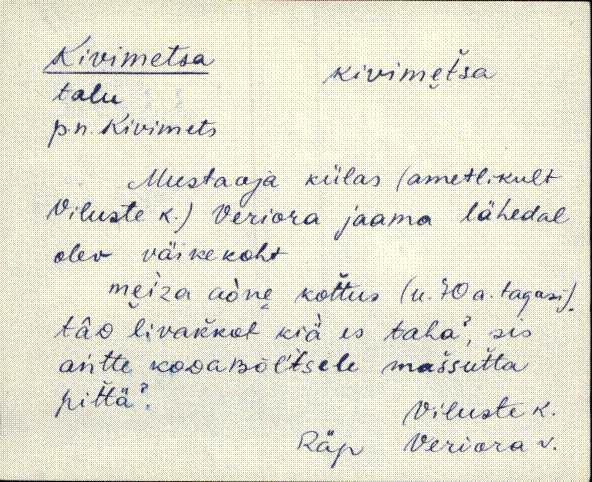 Kivimetsa kivime̮t̆sa
talu
p.n. Kivimets
Mustaoja külas (ametlikult
Viluste k.) Veriora jaama lähedal
olev väikekoht
me̮iza aòne̮ kot̆tus (u. 70 a. tagasi).
tâo livak̆kol kiä̀ es taha?, sis
an̆tte kooaʙȯĺtsele maššut̆ta
pit̆tä?.
Viluste k.
Räp Veriora v.